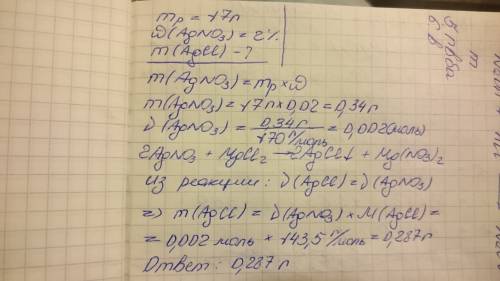 mр = 17г
ω(AgNO3) = 2%
m(AgCl) - ?
m(AgNO3) = mр × ω
m(AgNO3) = 17г × 0,02 = 0,34г
ν(AgNO3) = 0,34г / 170 г/моль = 0,002(моль)
2AgNO3 + MgCl2 → 2AgCl↓ + Mg(NO3)2
Из реакции: ν(AgCl) = ν(AgNO3)
=> m(AgCl) = ν(AgNO3) × M(AgCl) =
= 0,002 моль × 143,5 г/моль = 0,287г
Ответ: 0,287 г